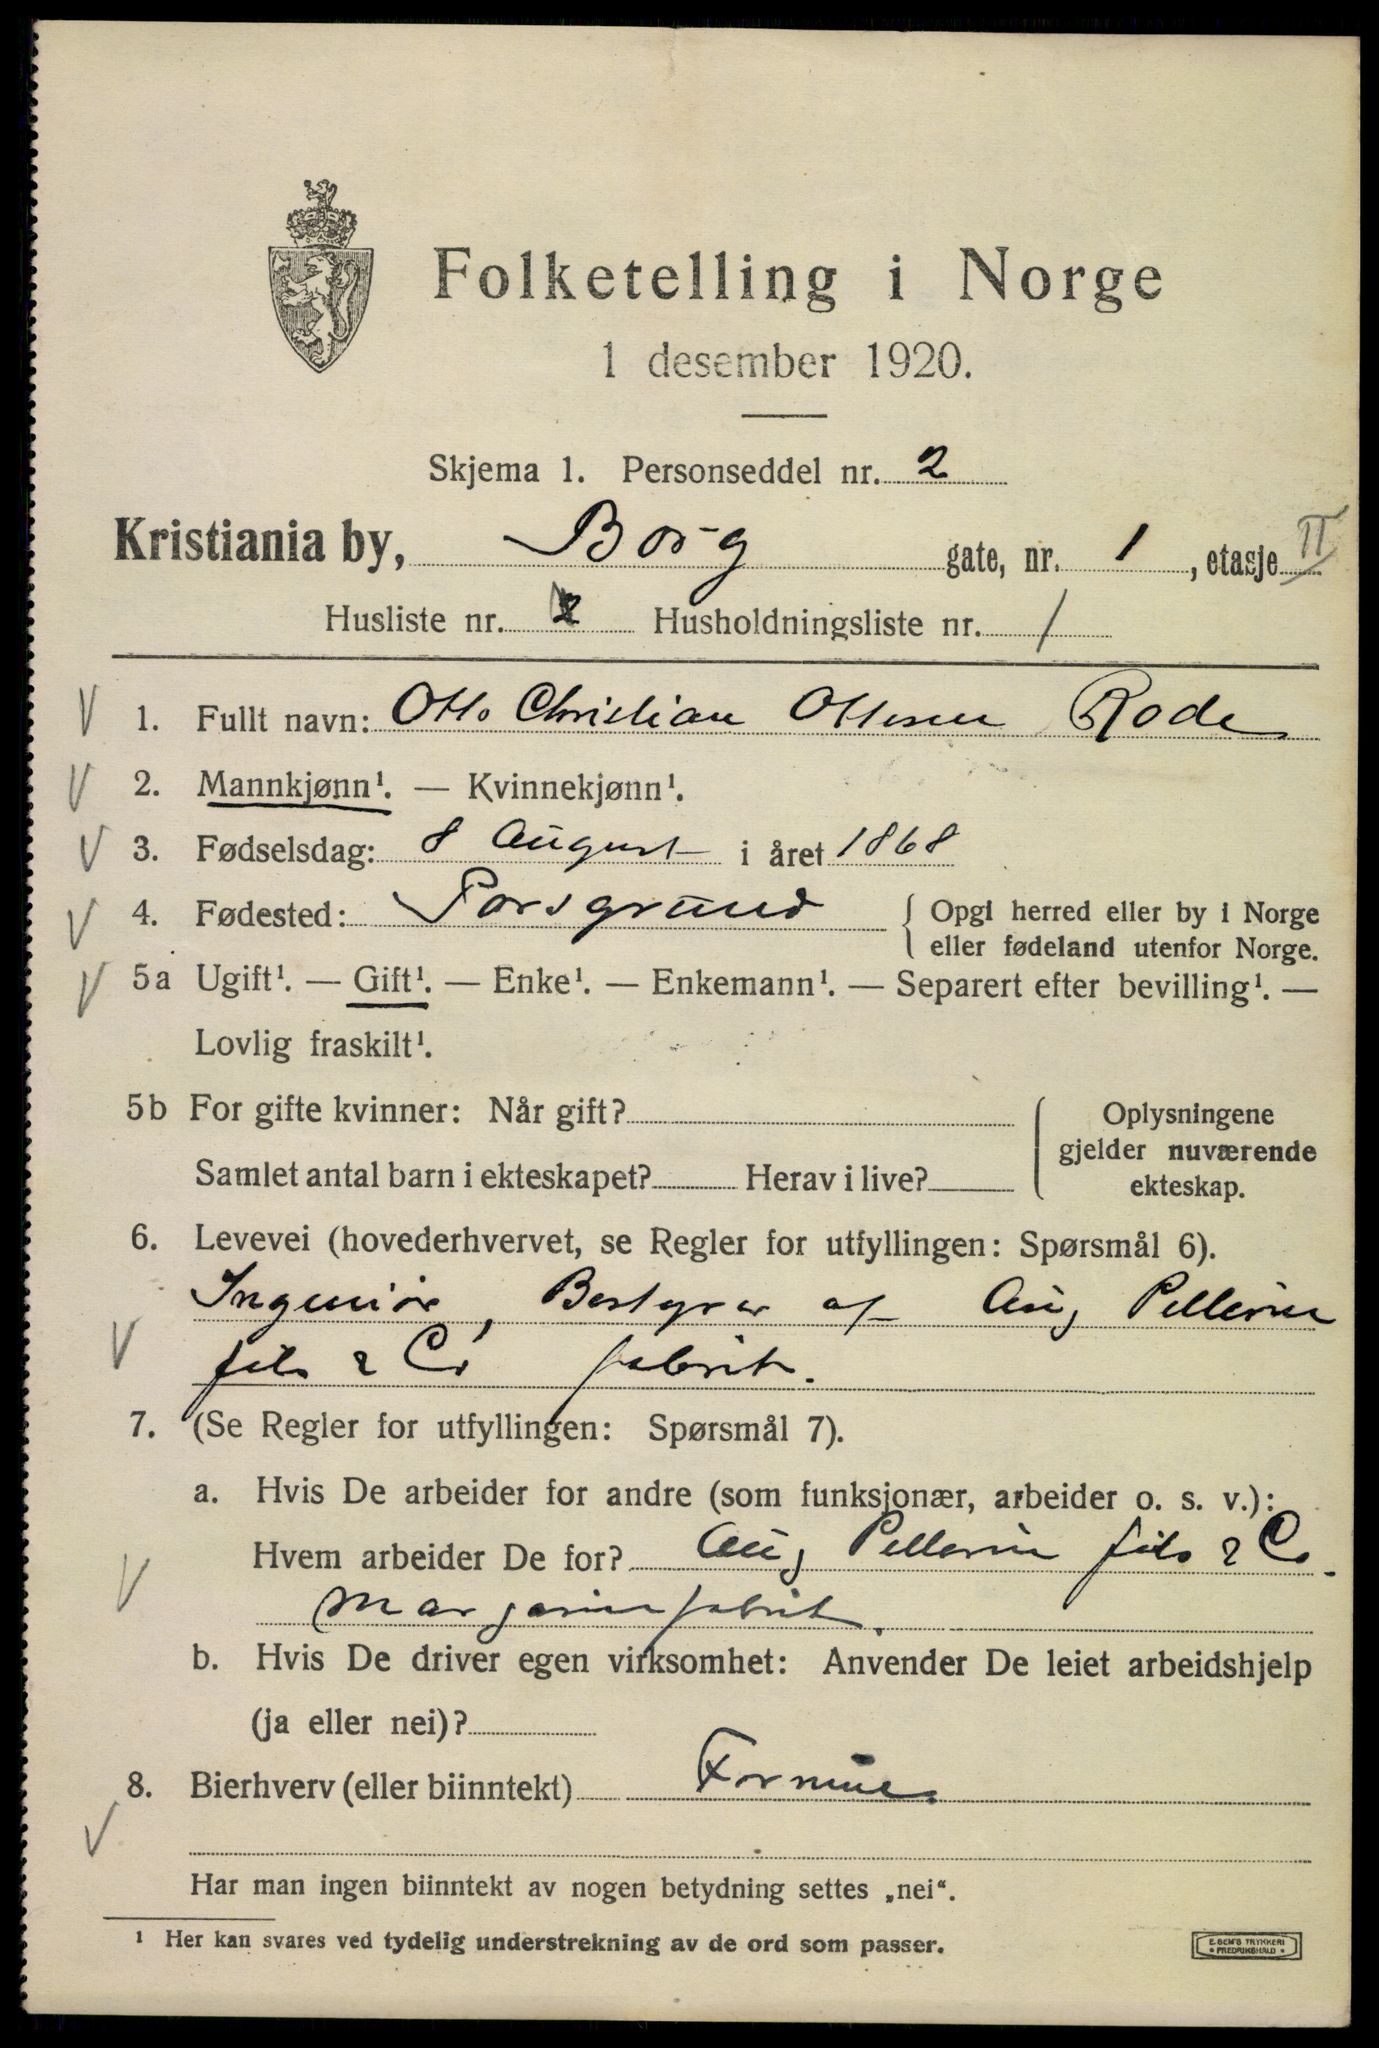 Folketelling i Norge
1 desember 1920.
Skjema 1. Personseddel nr. 2
Kristiania by, Borg gate, nr. 1, etasje II
Husliste nr. 2 Husholdningsliste nr. 1
1. Fullt navn: Otto Christian Ottesen Rode
2. Mannkjønn¹. — Kvinnekjønn¹.
3. Fødselsdag: 8 August i året 1868
4. Fødested: Porsgrund { Opgi herred eller by i Norge
eller fødeland utenfor Norge.
5a Ugift¹. — Gift¹. — Enke¹. — Enkemann¹. — Separert efter bevilling¹. —
Lovlig fraskilt¹.
5b For gifte kvinner: Når gift? { Oplysningene
gjelder nuværende
Samlet antal barn i ekteskapet? Herav i live? ekteskap.
6. Levevei (hovederhvervet, se Regler for utfyllingen: Spørsmål 6).
Ingeniør, Bestyrer af Aug Pellerin
fils & Co fabrik.
7. (Se Regler for utfyllingen: Spørsmål 7).
a. Hvis De arbeider for andre (som funksjonær, arbeider o. s. v.):
Hvem arbeider De for? Aug Pellerin fils & Co.
Margarinfabrik.
b. Hvis De driver egen virksomhet: Anvender De leiet arbeidshjelp
(ja eller nei)?
8. Bierhverv (eller biinntekt) Formue.
Har man ingen biinntekt av nogen betydning settes „nei“.
¹ Her kan svares ved tydelig understrekning av de ord som passer.
E. SEM'S TRYKKERI
• FREDRIKSHALD •